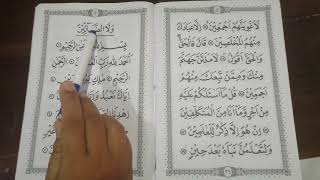 لَأُغْوِيَنَّهُمْ أَجْمَعِينَ إِلَّا عِبَادَكَ
مِنْهُمُ الْمُخْلَصِينَ قَالَ فَالْحَقُّ
وَالْحَقَّ أَقُولُ لَأَمْلَأَنَّ جَهَنَّمَ
مِنْكَ وَمِمَّنْ تَبِعَكَ مِنْهُمْ
أَجْمَعِينَ قُلْ مَا أَسْأَلُكُمْ عَلَيْهِ
مِنْ أَجْرٍ وَمَا أَنَا مِنَ الْمُتَكَلِّفِينَ
إِنْ هُوَ إِلَّا ذِكْرٌ لِلْعَالَمِينَ
وَلَتَعْلَمُنَّ نَبَأَهُ بَعْدَ حِينٍ
وَلَا الضَّالِّينَ
بِسْمِ الرَّحِيمِ
الْحَمْدُ لِلَّهِ رَبِّ
الرَّحِيمِ مَلِكِ
إِيَّاكَ نَعْبُدُ
اهْدِنَا